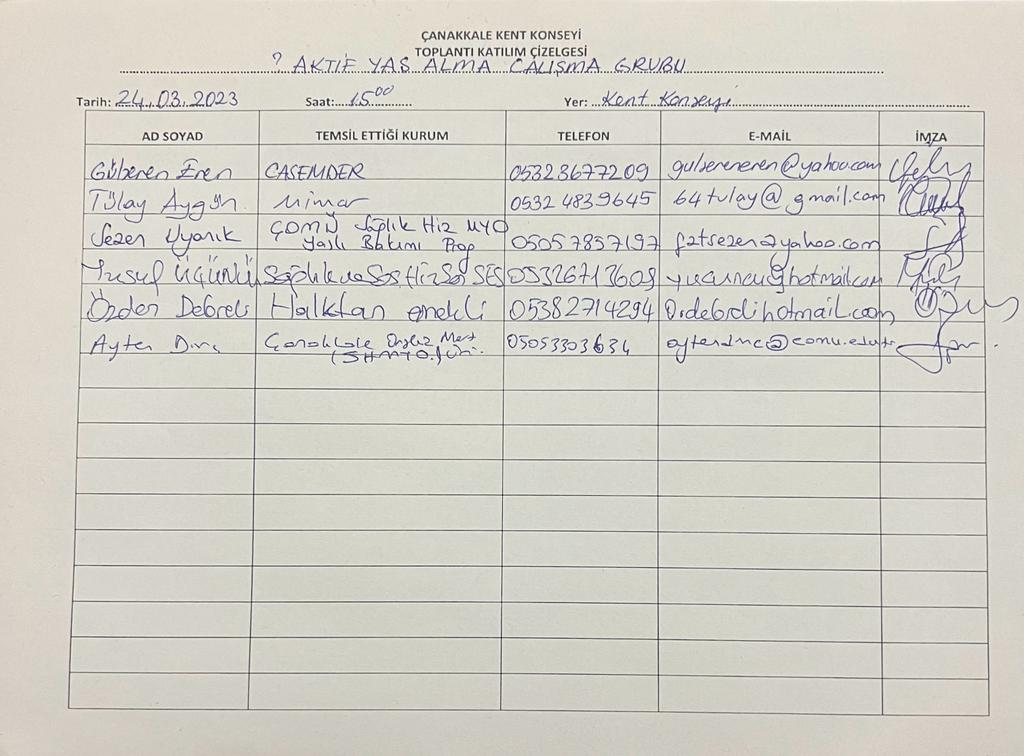 ÇANAKKALE KENT KONSEYİ
TOPLANTI KATILIM ÇİZELGESİ
? AKTİF YAŞ ALMA ÇALIŞMA GRUBU
Tarih: 24.03.2023 Saat: 15.00 Yer: Kent Konseyi
AD SOYAD TEMSİL ETTİĞİ KURUM TELEFON E-MAİL İMZA
Gülseren Eren CASEMDER 05323677209 gulsereneren@yahoo.com
Tülay Aygün Mimar 0532 4839645 64tulay@gmail.com
Sezen Uyanık ÇOMÜ Sağlık Hiz MYO Yaşlı Bakımı Prog 05057837197 fatsezen@yahoo.com
Yusuf Üçüncü Sağlık ve Sos Hiz Sen SES 05326713609 yucuncu@hotmail.com
Özden Debreli Halktan emekli 05382714294 O.debrdihotmail.com
Ayten Dinç Çanakkale Onsekiz Mart (SHMYO) Üni. 05053303634 aytendinc@comu.edu.tr